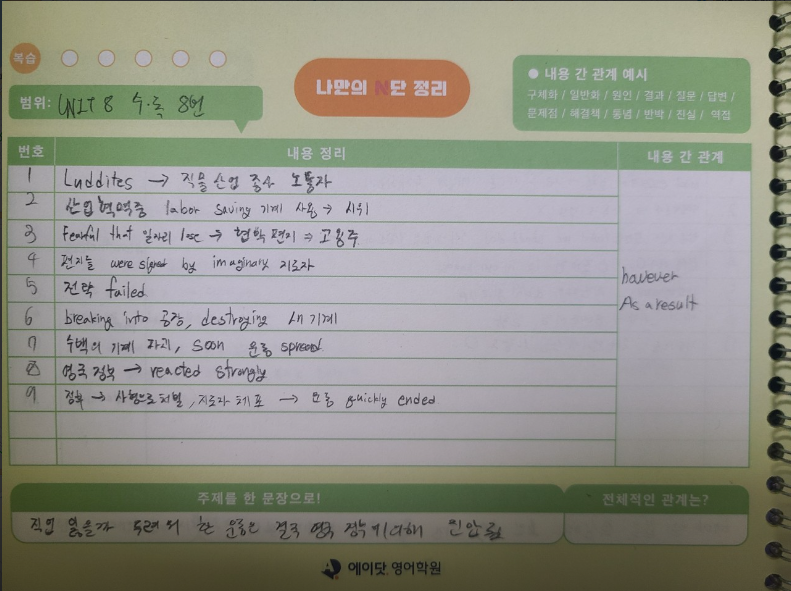 복습
나만의 N단 정리
● 내용 간 관계 예시
구체화 / 일반화 / 원인 / 결과 / 질문 / 답변 /
문제점 / 해결책 / 통념 / 반박 / 진실 / 역접
범위: UNIT 8 수·특 8번
번호 내용 정리 내용 간 관계
1 Luddites → 직물 산업 종사 노동자
2 산업혁명중 labor saving 기계 사용 → 시위
3 fearful that 일자리 lose → 협박 편지 ⇒ 고용주
4 편지들 were signed by imaginary 지도자
5 전략 failed
however
As a result
6 breaking into 공장, destroying 기계
7 수백의 기계 파괴, soon 운동 spread.
8 영국 정부 → reacted strongly
9 정부 → 사형으로 처벌, 지도자 체포 → 운동 quickly ended
주제를 한 문장으로! 전체적인 관계는?
직업 잃을까 두려워 한 운동은 결국 영국 정부에 의해 진압됨
에이닷 영어학원